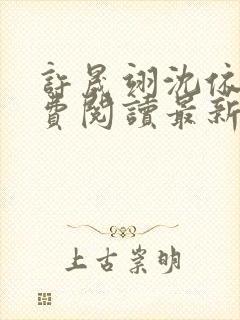 許晟翊沈依
費閱讀最新
上古崇明